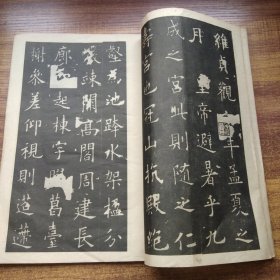 維貞觀年孟夏之
月皇帝避暑乎九
成之宮此則随之仁
壽宮也冠山抗殿絶
壑為池跨水架楹分
巖竦闕髙閣周建長
廊起棟宇葛臺
榭參差仰視則迢遰